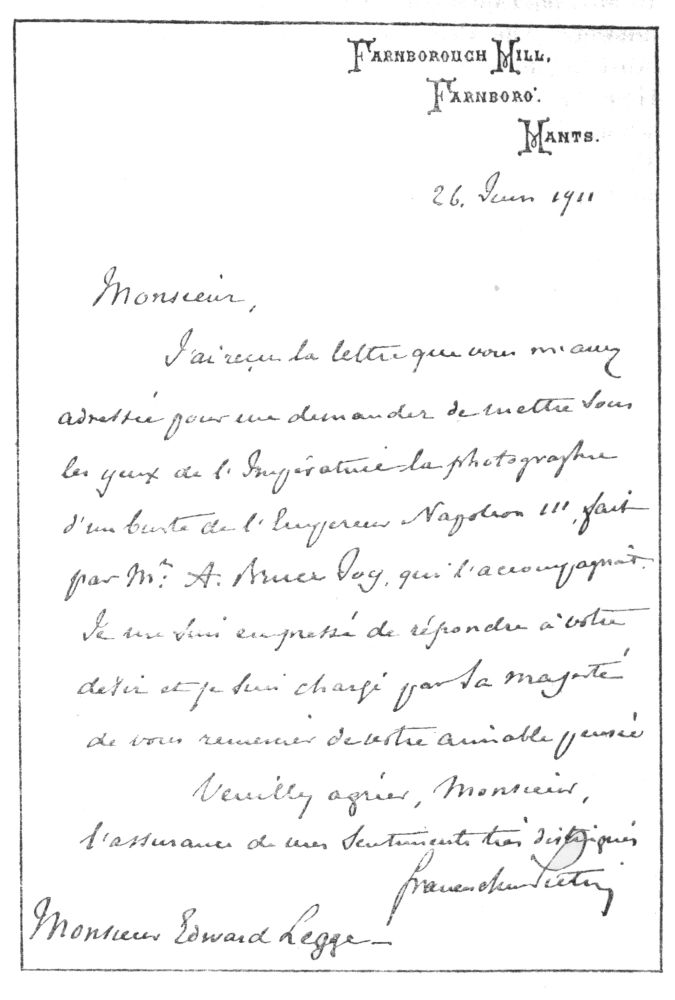 FARNBOROUGH HILL,
FARNBORO'.
HANTS.
26. Juin 1911
Monsieur,
J'ai reçu la lettre que vous m'avez
adressée pour me demander de mettre sous
les yeux de l'Impératrice la photographie
d'un buste de l'Empereur Napoléon III, fait
par Mr. A. Bruce Joy, qui l'accompagnait.
Je me suis empressé de répondre à votre
desir et je suis chargé par Sa Majesté
de vous remercier de votre aimable pensée
Veuillez agréer, Monsieur,
l'assurance de mes sentiments très distingués
Franceschini Pietri
Monsieur Edward Legge_